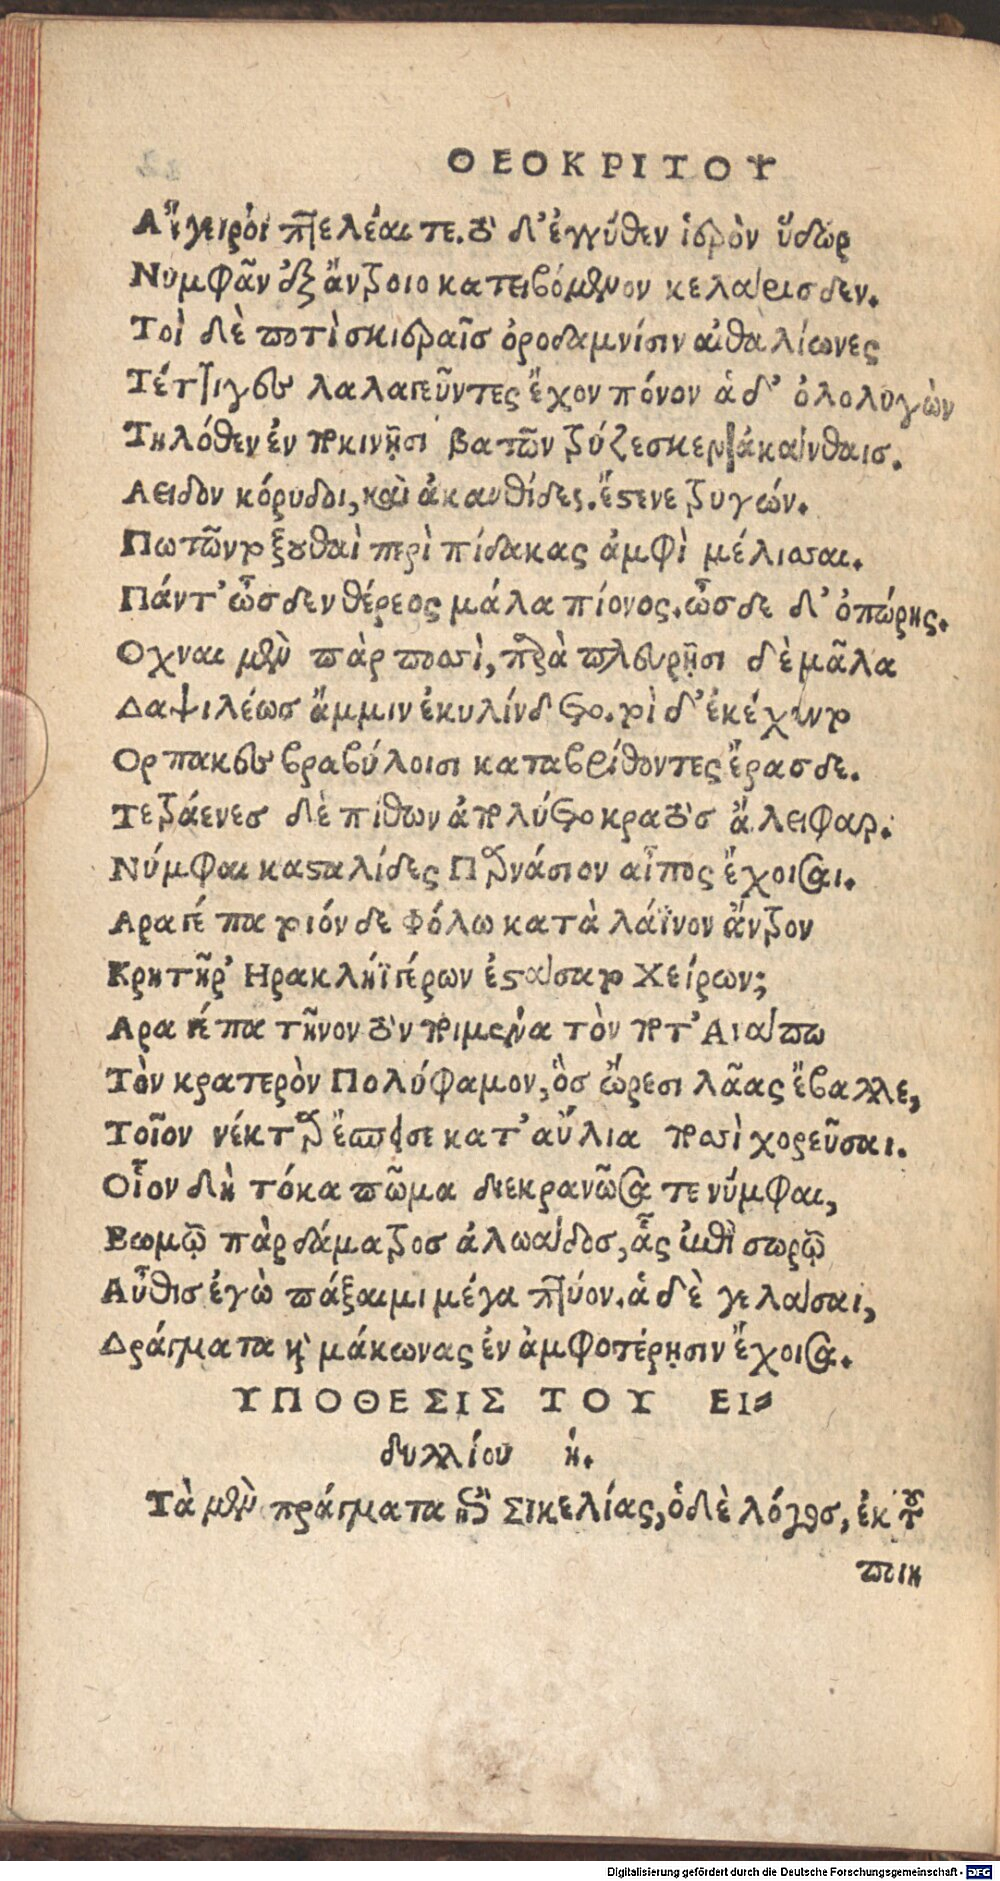 ΘΕΟΚΡΙΤΟΥ
Αἴγειροι πτελέαι τε. τὸ δ' ἐγγύθεν ἱερὸν ὕδωρ
Νυμφᾶν ἐξ ἄντροιο κατειβόμενον κελάρισδεν.
Τοὶ δὲ ποτὶ σκιεραῖσ ὀροδαμνίσιν αἰθαλίωνες
Τέτ]ιγες λαλαγεῦντες ἔχον πόνον ἁ δ' ὀλολυγὼν
Τηλόθεν ἐν πυκινῇσι βατῶν τρύζεσκεν ἀκάνθαισ.
Αειδον κόρυδοι, καὶ ἀκανθίδες. ἔστενε τρυγών.
Πωτῶντο ξουθαὶ περὶ πίδακας ἀμφὶ μέλισσαι.
Πάντ' ὦσδεν θέρεος μάλα πίονος. ὦσδε δ' ὀπώρης.
Οχναι μὲν πὰρ ποσσὶ, παρὰ πλευρῇσι δὲ μᾶλα
Δαψιλέωσ ἄμμιν ἐκυλίνδετο. τοὶ δ' ἐκέχυντο
Ορπακες βραβύλοισι καταβρίθοντες ἔρασδε.
Τετράενεσ δὲ πίθων ἀπελύετο κρατὸσ ἄλειφαρ.
Νύμφαι κασταλίδες Παρνάσιον αἶπος ἔχοισαι.
Αρα γέ πα τοιόνδε Φόλω κατὰ λάϊνον ἄντρον
Κρητῆρ' Ηρακλῆϊ γέρων ἐστάσατο Χείρων;
Αρα γέ πα τῆνον τὸν ποιμένα τὸν ποτ' Ανάπω
Τὸν κρατερὸν Πολύφαμον, ὃσ ὤρεσι λᾶας ἔβαλλε,
Τοῖον νέκταρ ἔπεισε κατ' αὔλια ποσσὶ χορεῦσαι.
Οἷον δὴ τόκα πῶμα διεκρανῶσατε νύμφαι,
Βωμῷ πὰρ δάματροσ ἀλωάδοσ, ἇς ἐπὶ σωρῷ
Αὖθισ ἐγὼ πάξαιμι μέγα πτύον. ἁ δὲ γελάσαι,
Δράγματα καὶ μάκωνας ἐν ἀμφοτέρῃσιν ἔχοισα.
ΥΠΟΘΕΣΙΣ ΤΟΥ ΕΙ-
δυλλίου ή.
Τὰ μὲν πράγματα ἐπὶ Σικελίας, ὁ δὲ λόγος, ἐκ τοῦ
ποιη
Digitalisierung gefördert durch die Deutsche Forschungsgemeinschaft - DFG